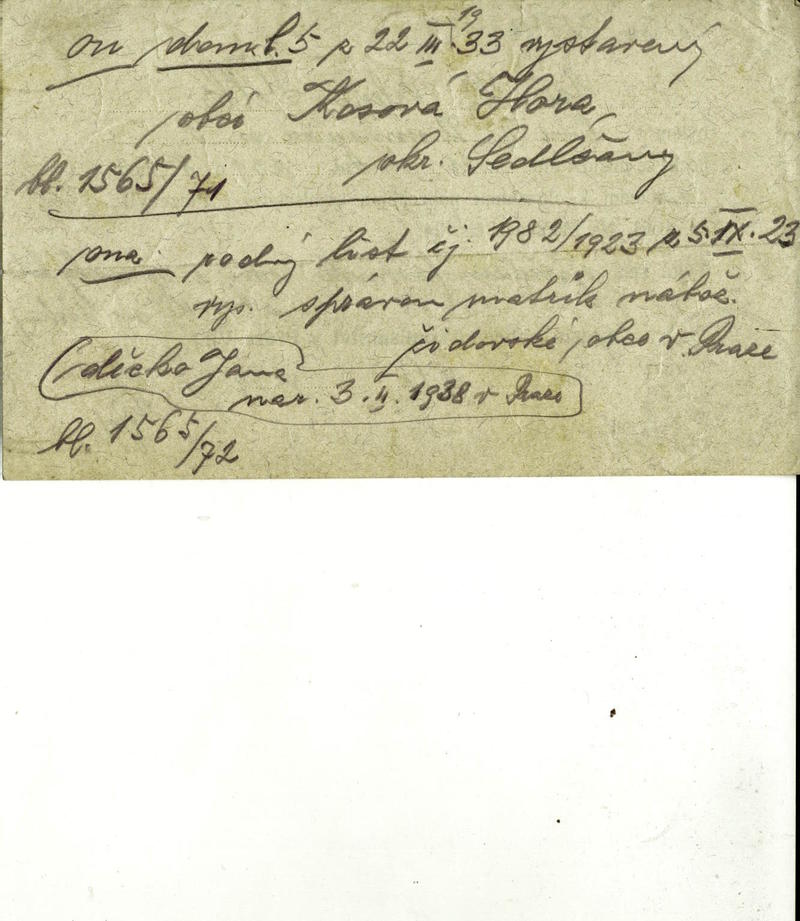 on dom.l. 5 z 22 III. 1933 vystavený
obcí Kosová Hora,
okr. Sedlčany
bl. 1565/71
ona: rodný list čj. 1982/1923 z 5 IX. 23
vys. správou matrik nábož.
židovské obce v Praze
děcko Jana
nar. 3. II. 1938 v Praze
bl. 1565/72